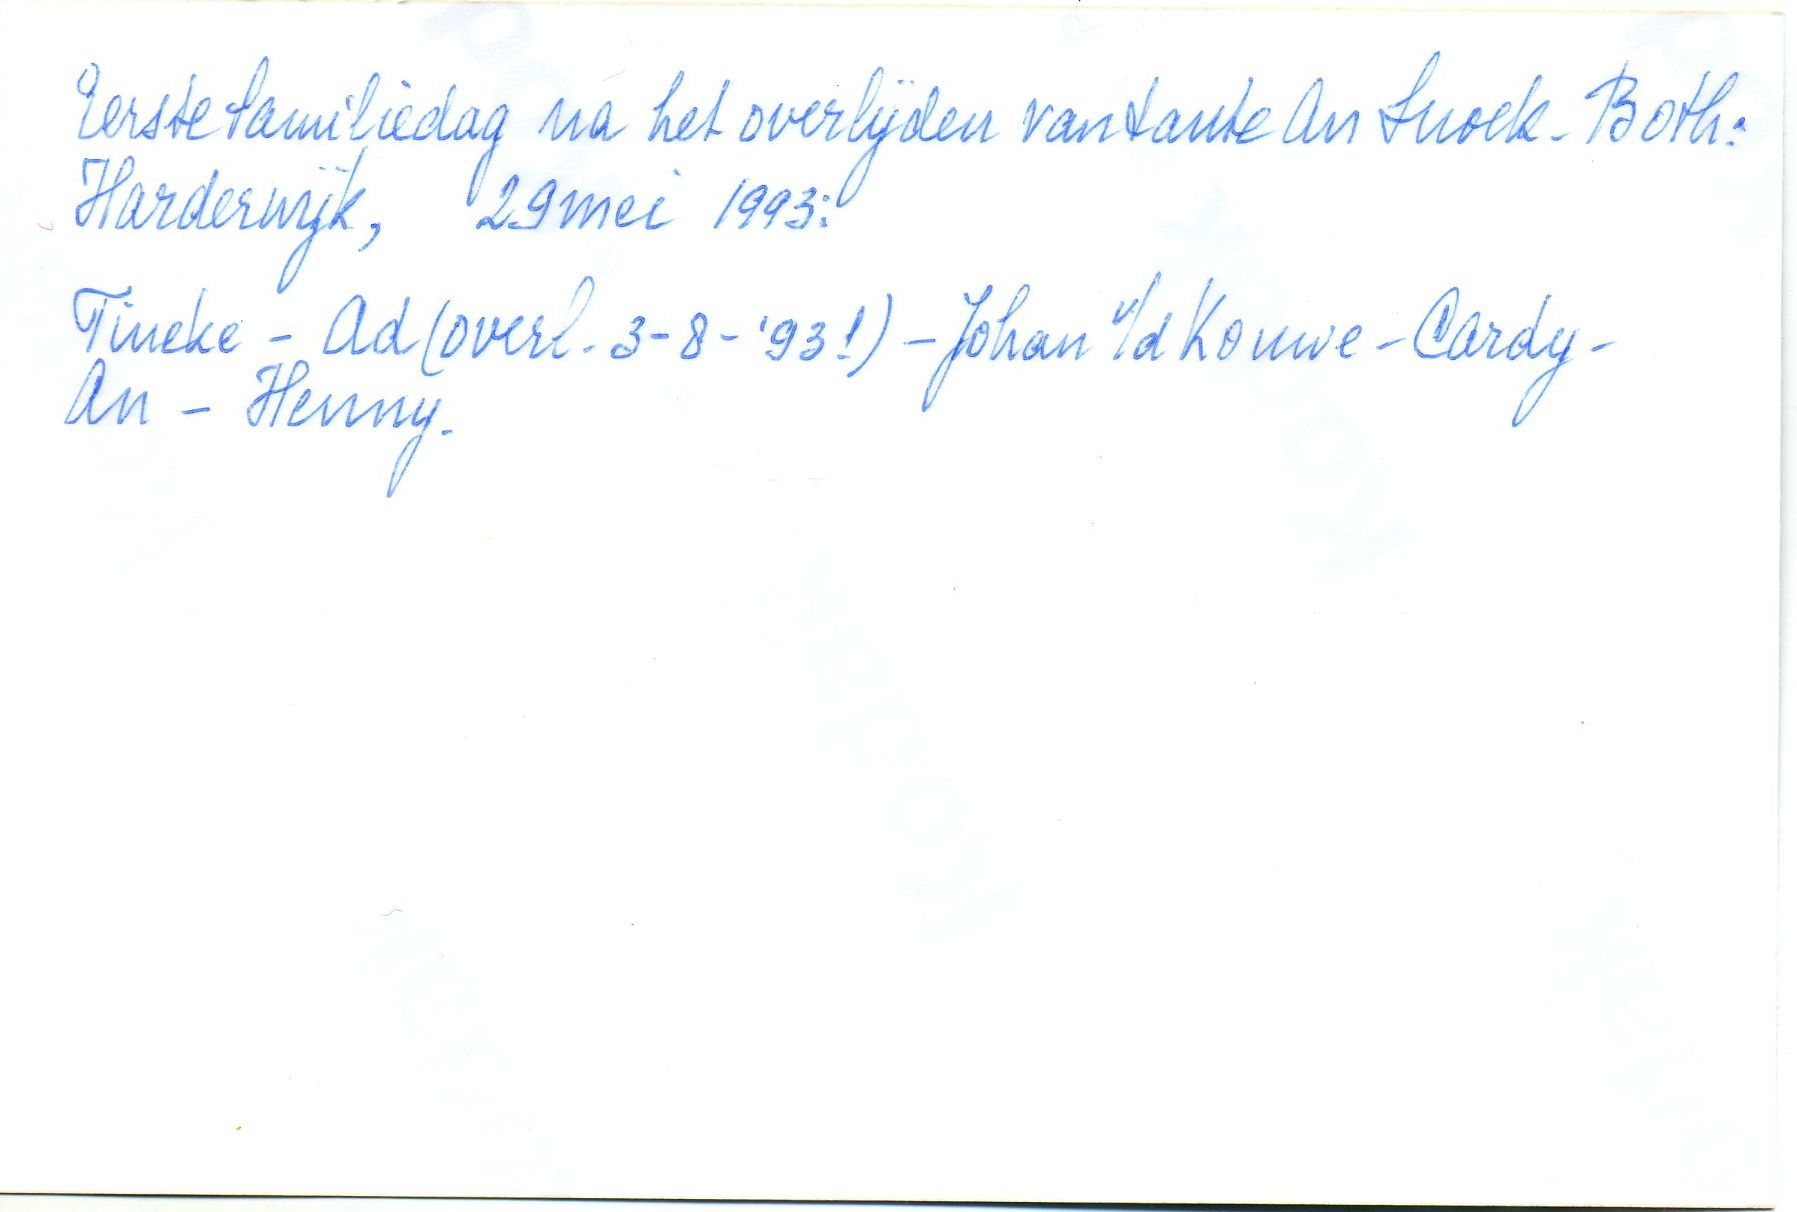 Eerste familiedag na het overlijden van tante An Snoek-Both:
Harderwijk, 29 mei 1993:
Tineke - Ad (overl. 3-8-'93!) - Johan v/d Kouwe - Cardy -
An - Henny.